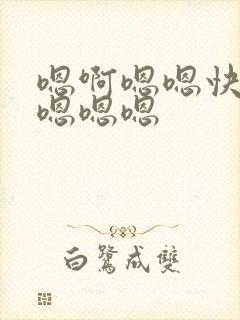 嗯啊嗯嗯快
嗯嗯嗯
白鹭成雙